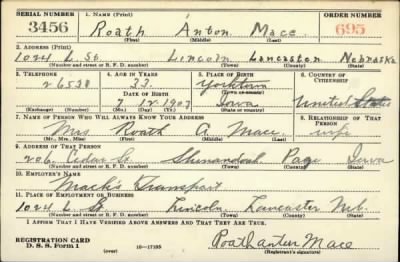 SERIAL NUMBER 1. NAME (Print) ORDER NUMBER
3456 Roath Anton Mace 695
(First) (Middle) (Last)
2. ADDRESS (Print)
1024 L St. Lincoln Lancaster Nebraska
(Number and street or R. F. D. number) (Town) (County) (State)
3. TELEPHONE 4. AGE IN YEARS 5. PLACE OF BIRTH 6. COUNTRY OF CITIZENSHIP
26538 33 Yorktown
DATE OF BIRTH (Town or county)
7 12 1907 Iowa United States
(Exchange) (Number) (Mo.) (Day) (Yr.) (State or country)
7. NAME OF PERSON WHO WILL ALWAYS KNOW YOUR ADDRESS 8. RELATIONSHIP OF THAT PERSON
Mrs Roath A. Mace wife
(Mr., Mrs., Miss) (First) (Middle) (Last)
9. ADDRESS OF THAT PERSON
206 Cedar St. Shenandoah Page Iowa
(Number and street or R. F. D. number) (Town) (County) (State)
10. EMPLOYER'S NAME
Mack's Transport
11. PLACE OF EMPLOYMENT OR BUSINESS
1024 L St. Lincoln Lancaster Neb.
(Number and street or R. F. D. number) (Town) (County) (State)
I AFFIRM THAT I HAVE VERIFIED ABOVE ANSWERS AND THAT THEY ARE TRUE.
REGISTRATION CARD
D. S. S. Form 1 (over) 16—17105 Roath anton Mace
(Registrant's signature)